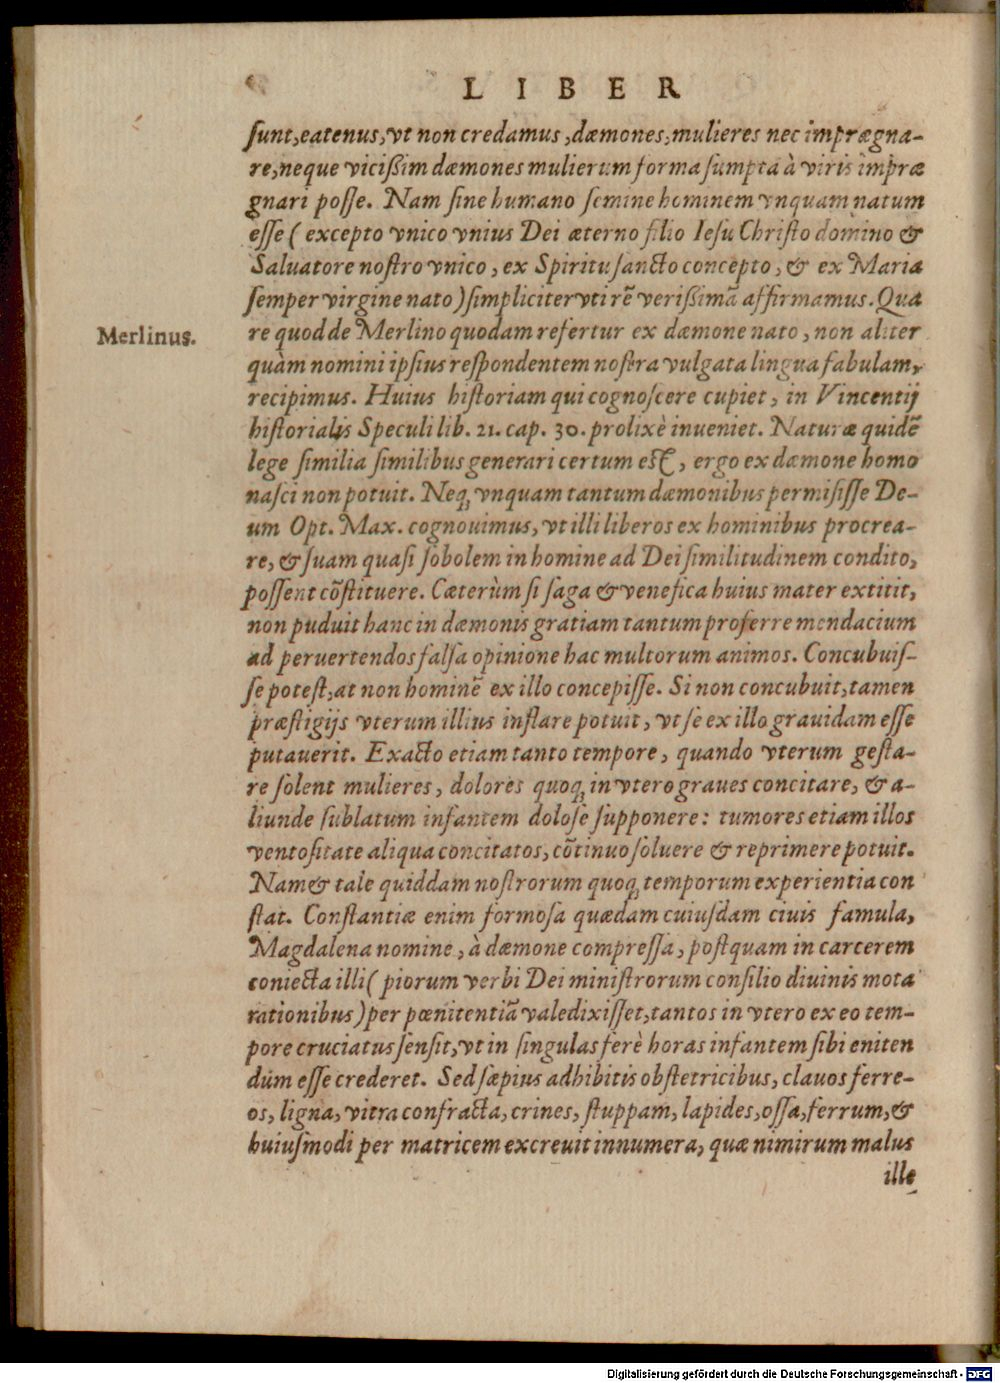 LIBER
sunt, eatenus, vt non credamus, dæmones, mulieres nec imprægna-
re, neque vicißim dæmones mulierum forma sumpta à viris impræ
gnari posse. Nam sine humano semine hominem vnquam natum
esse (excepto vnico vnius Dei æterno filio Iesu Christo domino &
Saluatore nostro vnico, ex Spiritu sancto concepto, & ex Maria
semper virgine nato) simpliciter vti rẽ verißimã affirmamus. Qua
Merlinus.
re quod de Merlino quodam refertur ex dæmone nato, non aliter
quàm nomini ipsius respondentem nostra vulgata lingua fabulam,
recipimus. Huius historiam qui cognoscere cupiet, in Vincentij
historialis Speculi lib. 21. cap. 30. prolixè inueniet. Naturæ quidẽ
lege similia similibus generari certum est, ergo ex dæmone homo
nasci non potuit. Neq; vnquam tantum dæmonibus permisisse De-
um Opt. Max. cognouimus, vt illi liberos ex hominibus procrea-
re, & suam quasi sobolem in homine ad Dei similitudinem condito,
possent cõstituere. Cæterùm si saga & venefica huius mater extitit,
non puduit hanc in dæmonis gratiam tantum proferre mendacium
ad peruertendos falsa opinione hac multorum animos. Concubuis-
se potest, at non hominẽ ex illo concepisse. Si non concubuit, tamen
præstigijs vterum illius inflare potuit, vt se ex illo grauidam esse
putauerit. Exacto etiam tanto tempore, quando vterum gesta-
re solent mulieres, dolores quoq; in vtero graues concitare, & a-
liunde sublatum infantem dolose supponere: tumores etiam illos
ventositate aliqua concitatos, cõtinuo soluere & reprimere potuit.
Nam & tale quiddam nostrorum quoq; temporum experientia con
stat. Constantiæ enim formosa quædam cuiusdam ciuis famula,
Magdalena nomine, à dæmone compressa, postquam in carcerem
coniecta illi (piorum verbi Dei ministrorum consilio diuinis mota
rationibus) per pœnitentiã valedixisset, tantos in vtero ex eo tem-
pore cruciatus sensit, vt in singulas ferè horas infantem sibi eniten
dum esse crederet. Sed sæpius adhibitis obstetricibus, clauos ferre-
os, ligna, vitra confracta, crines, stuppam, lapides, ossa, ferrum, &
huiusmodi per matricem excreuit innumera, quæ nimirum malus
ille
Digitalisierung gefördert durch die Deutsche Forschungsgemeinschaft - DFG